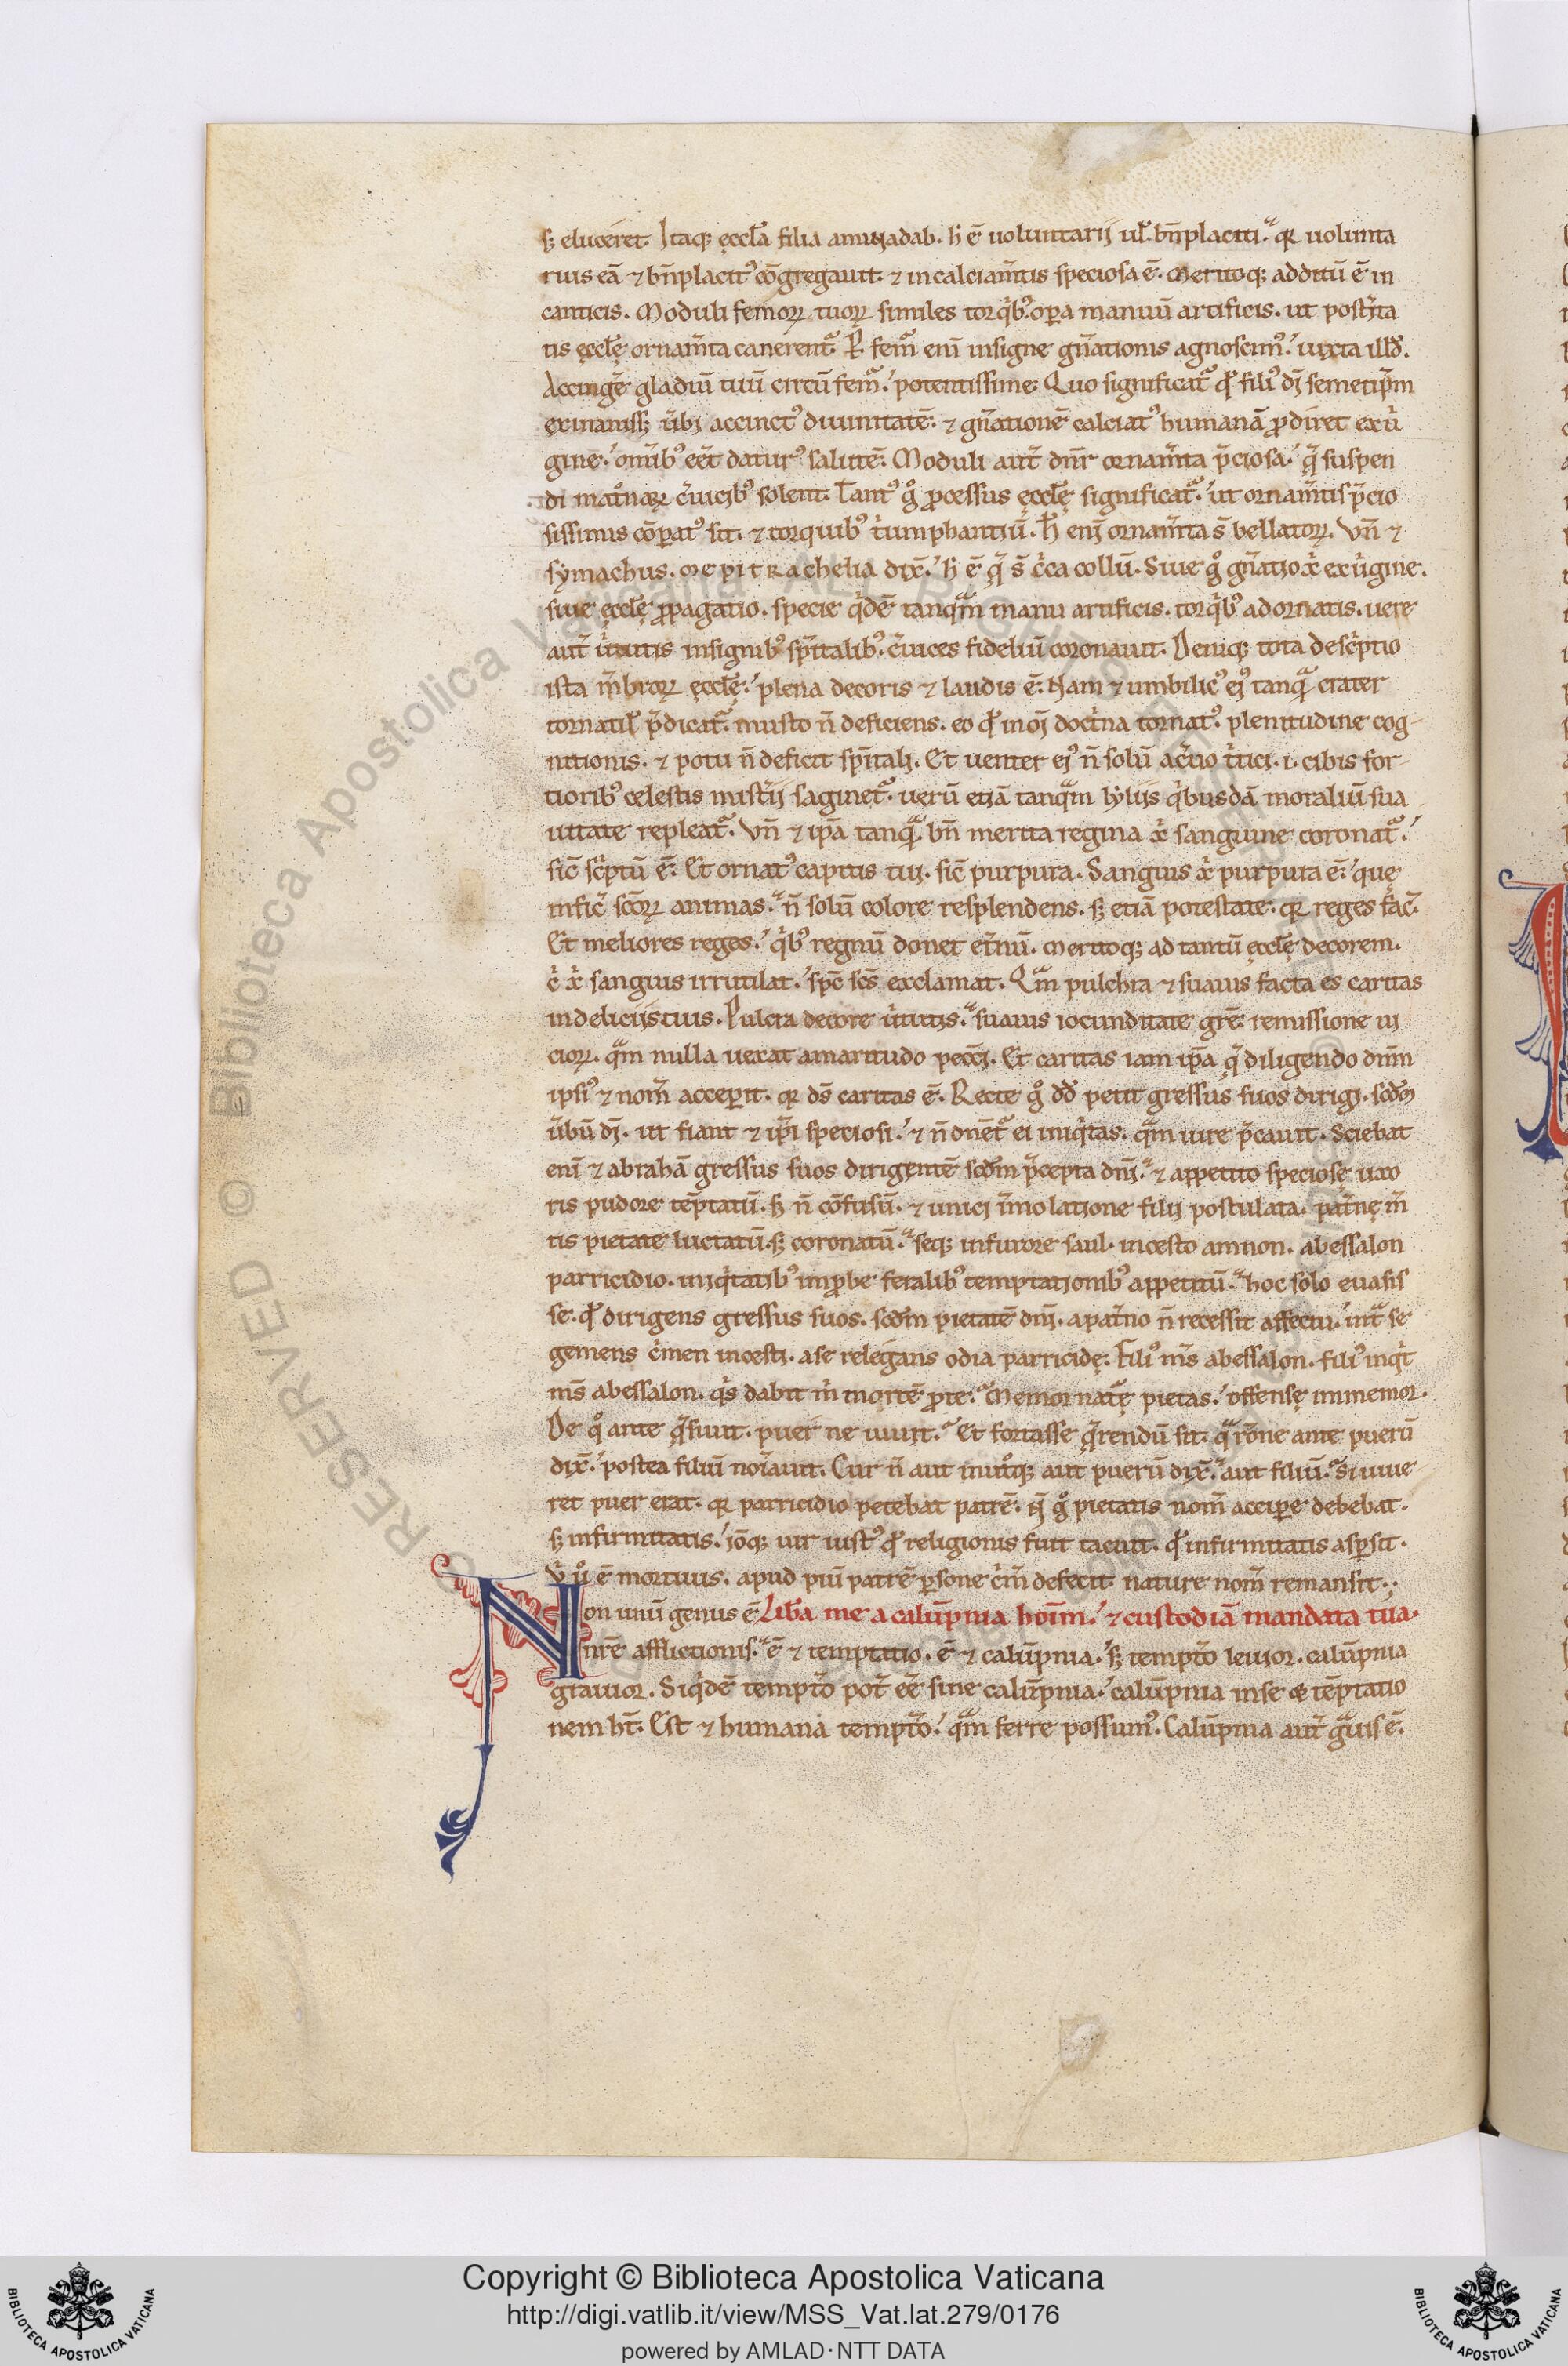 sꝫ eluceret. Itaqꝫ ęccl̄a filia aminadab. h̄ ē uoluntarij ul̓ bn̄placiti. qꝛ uolunta
rius eā ⁊ bn̄placitꝰ cōgregauit. ⁊ in calciam̄tis speciosa ē. Meritoqꝫ additū ē in
canticis. Moduli femoꝝ tuoꝝ similes torqͥbꝰ. oꝑa manuū artificis. ut post̓ita
tis ęccl̄ę ornam̄ta canerent᷑. Ꝑ fem᷑ eni̅ insigne gn̄ationis agnoscimꝰ. iuxta illđ.
Accinge gladiū tuū circū fem᷑. potentissime. Quo significat᷑ qđ filiꝰ dj̄ semetip̄m
exinaniss; ūbj accinctꝰ diuinitatē. ⁊ gn̄ationē calciatꝰ humanā ꝓdiret ex ůi
gine. om̄ibꝰ eēt daturꝰ salutē. Moduli aut̄ dn̄r ornam̄ta p̄ciosa. q̄ suspen
di mat̊naꝝ c̓uicibꝰ solent. Tantꝰ g̊ ꝓcessus ęccl̄ę significat᷑. ut ornam̄tis p̄cio
sissimis cōparatꝰ sit. ⁊ torquibꝰ tͥumphantiū. H̄ enī ornam̄ta s̄ bellatoꝝ. Vn̄ ⁊
symachus. Mepitrachelia dix̄. h̄ ē q̄ s̄ cͥca collū. Siue g̊ gn̄atio xͥ ex uͥgine.
siue ęccl̄ę ꝓpagatio. specie qͥdē tanqᵃm manu artificis. torqͥbꝰ adornatis. uere
aut̄ uͥtutis insignibꝰ sp̄italibꝰ. c̓uices fideliū coronauit. Deniqꝫ tota descͥptio
ista m̄broꝝ ęccl̄ę. plena decoris ⁊ laudis ē. Nam ⁊ umbilicꝰ eiꝰ tanqᵃ crater
tornatil̓ p̄dicat᷑. musto n̄ deficiens. eo qđ in oj̄ doctͥna tornatꝰ. plenitudine cog-
nitionis. ⁊ potu n̄ deficit sp̄itali. Et uenter eiꝰ n̄ solū ac̄tio tͥtici. i. cibis for-
tioribꝰ celestis mist̓ij saginet᷑. uerū etiā tanqᵃm lylijs qͥbusdā moraliū sua
uitate repleat᷑. Vn̄ ⁊ ip̄a tanqᵃ bn̄ merita regina xͥ sanguine coronat᷑.
sic̄ scͥptū ē. Et ornatꝰ capitis tui. sic̄ purpura. Sanguis xͥ purpura ē. quę
inficͥ sc̄oꝝ animas. n̄ solū colore resplendens. sꝫ etiā potestate. qꝛ reges fac̄.
Et meliores reges. qͥbꝰ regnū donet et̓nū. Meritoqꝫ ad tantū ęccl̄ę decorem.
c̄ xͥ sanguis irrutilat. sp̄c sc̄s exclamat. Qᵃm pulchra ⁊ suauis facta es caritas
in delicijs tuis. Pulcra decore uͥtutis. suauis iocunditate gr̄ę. remissione ui
cioꝝ. qᵃm nulla uexat amaritudo pecc̄i. Et caritas iam ip̄a q̄ diligendo dn̄m
ipsiꝰ ⁊ nom̄ acceꝑit. qꝛ ds̄ caritas ē. Recte g̊ dd̄ petit gressus suos dirigi. scđm
ūbū dj̄. ut fiant ⁊ ip̄i speciosi. ⁊ n̄ dn̄et᷑ ei iniqͥtas. qᵃm iure p̄cauit. Sciebat
eni̅ ⁊ abrahā gressus suos dirigentē scđm p̄cepta dnī. ⁊ appetito speciose uxo
ris pudore tēptatū. sꝫ n̄ cōfusū. ⁊ unici īmolatione filij postulata. pat̓nę m̄
tis pietate luctatū. sꝫ coronatū. seqꝫ in furore saul. incesto amnon. abessalon
parricidio. iniqͥtatibꝰ improbe feralibꝰ temptationibꝰ appetitū. hoc solo euasis
se. qđ dirigens gressus suos. scđm pietatē dnī. a pat̓no n̄ recessit affectu. int̓ se
gemens cͥmen incesti. a se relegans odia parricidę. Filiꝰ mſ̄ abessalon. filiꝰ inqͥt
ms̄ abessalon. qͥs dabit m̄ mortē ꝓ te. Memor natᵃę pietas. offensę immemor.
De q̊ ante q̄siuit. puer ne uiuit. Et fortasse q̄rendū sit. qᵃ rōne ante puerū
dix̄. postea filiū noīauit. Cur n̄ aut in utroqꝫ aut puerū dix̄. aut filiū. Si uiue-
ret puer erat. qꝛ parricidio petebat patrē. Nꝫ g̊ pietatis nom̄ accipe debebat.
sꝫ infirmitatis. iōqꝫ uir iustꝰ qđ religionis fuit tacuit. qđ infirmitatis aspersit.
Vͥ ů ē mortuus. apud piū patrē ꝑsone cͥm̄ defecit. nature nom̄ remansit.
Non unū genus ē Lib̄a me a calūpnia hoīm. ⁊ custodiā mandata tua.
nr̄e afflictionis. ē ⁊ temptatio. ē ⁊ calūpnia. sꝫ tempt̄o leuior. calūpnia
grauior. Siqͥdē tempt̄o pot̄ eē sine calūpnia. calūpnia in se & tēptatio
nem ht̄. Est ⁊ humana tempt̄o. qᵃm ferre possumꝰ. Calūpnia aut̄ gᵃuis ē.
Copyright © Biblioteca Apostolica Vaticana
http://digi.vatlib.it/view/MSS_Vat.lat.279/0176
powered by AMLAD·NTT DATA